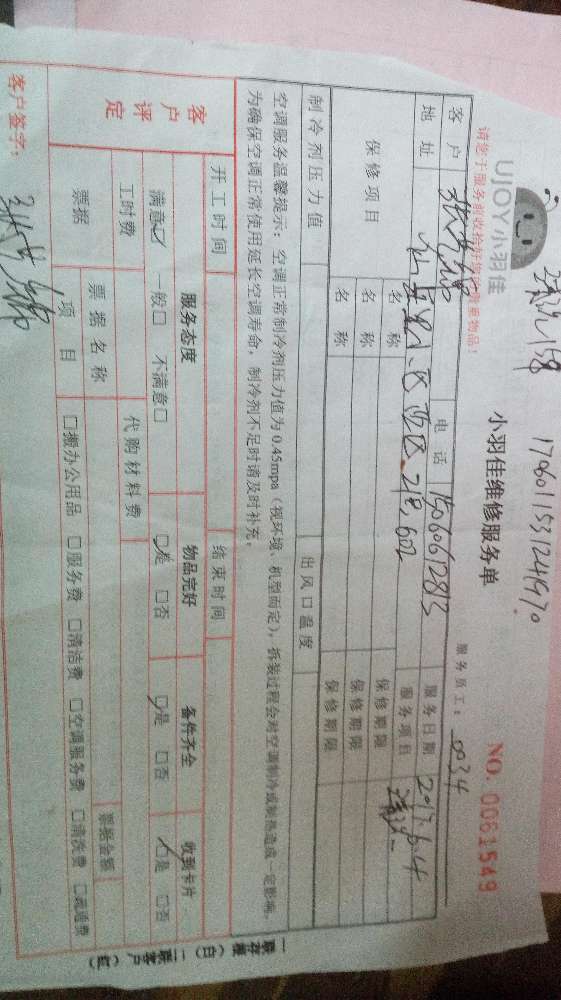 UJOY小羽佳
小羽佳维修服务单
NO. 0061549
服务员工: 0034
客户
电话 15060612813
服务日期 2017.6.4
地址
小区
服务项目 清洗
保修项目
名称
保修期限
名称
保修期限
名称
保修期限
制冷剂压力值
出风口温度
空调服务温馨提示:空调正常制冷剂压力值为0.45mpa(视环境、机型而定),拆装过程会对空调制冷或制热造成一定影响。
为确保空调正常使用延长空调寿命,制冷剂不足时请及时补充。
开工时间
结束时间
客户评定
服务态度
物品完好
备件齐全
收到卡片
满意☑ 一般□ 不满意□
☑是 □否
☑是 □否
☑是 □否
工时费
代购材料费
票据
票据名称
票据金额
项目
□搬办公用品 □服务费 □清洁费 □空调服务费 □清洗费 □疏通费
客户签字:
一联存根(白)二联客户(红)